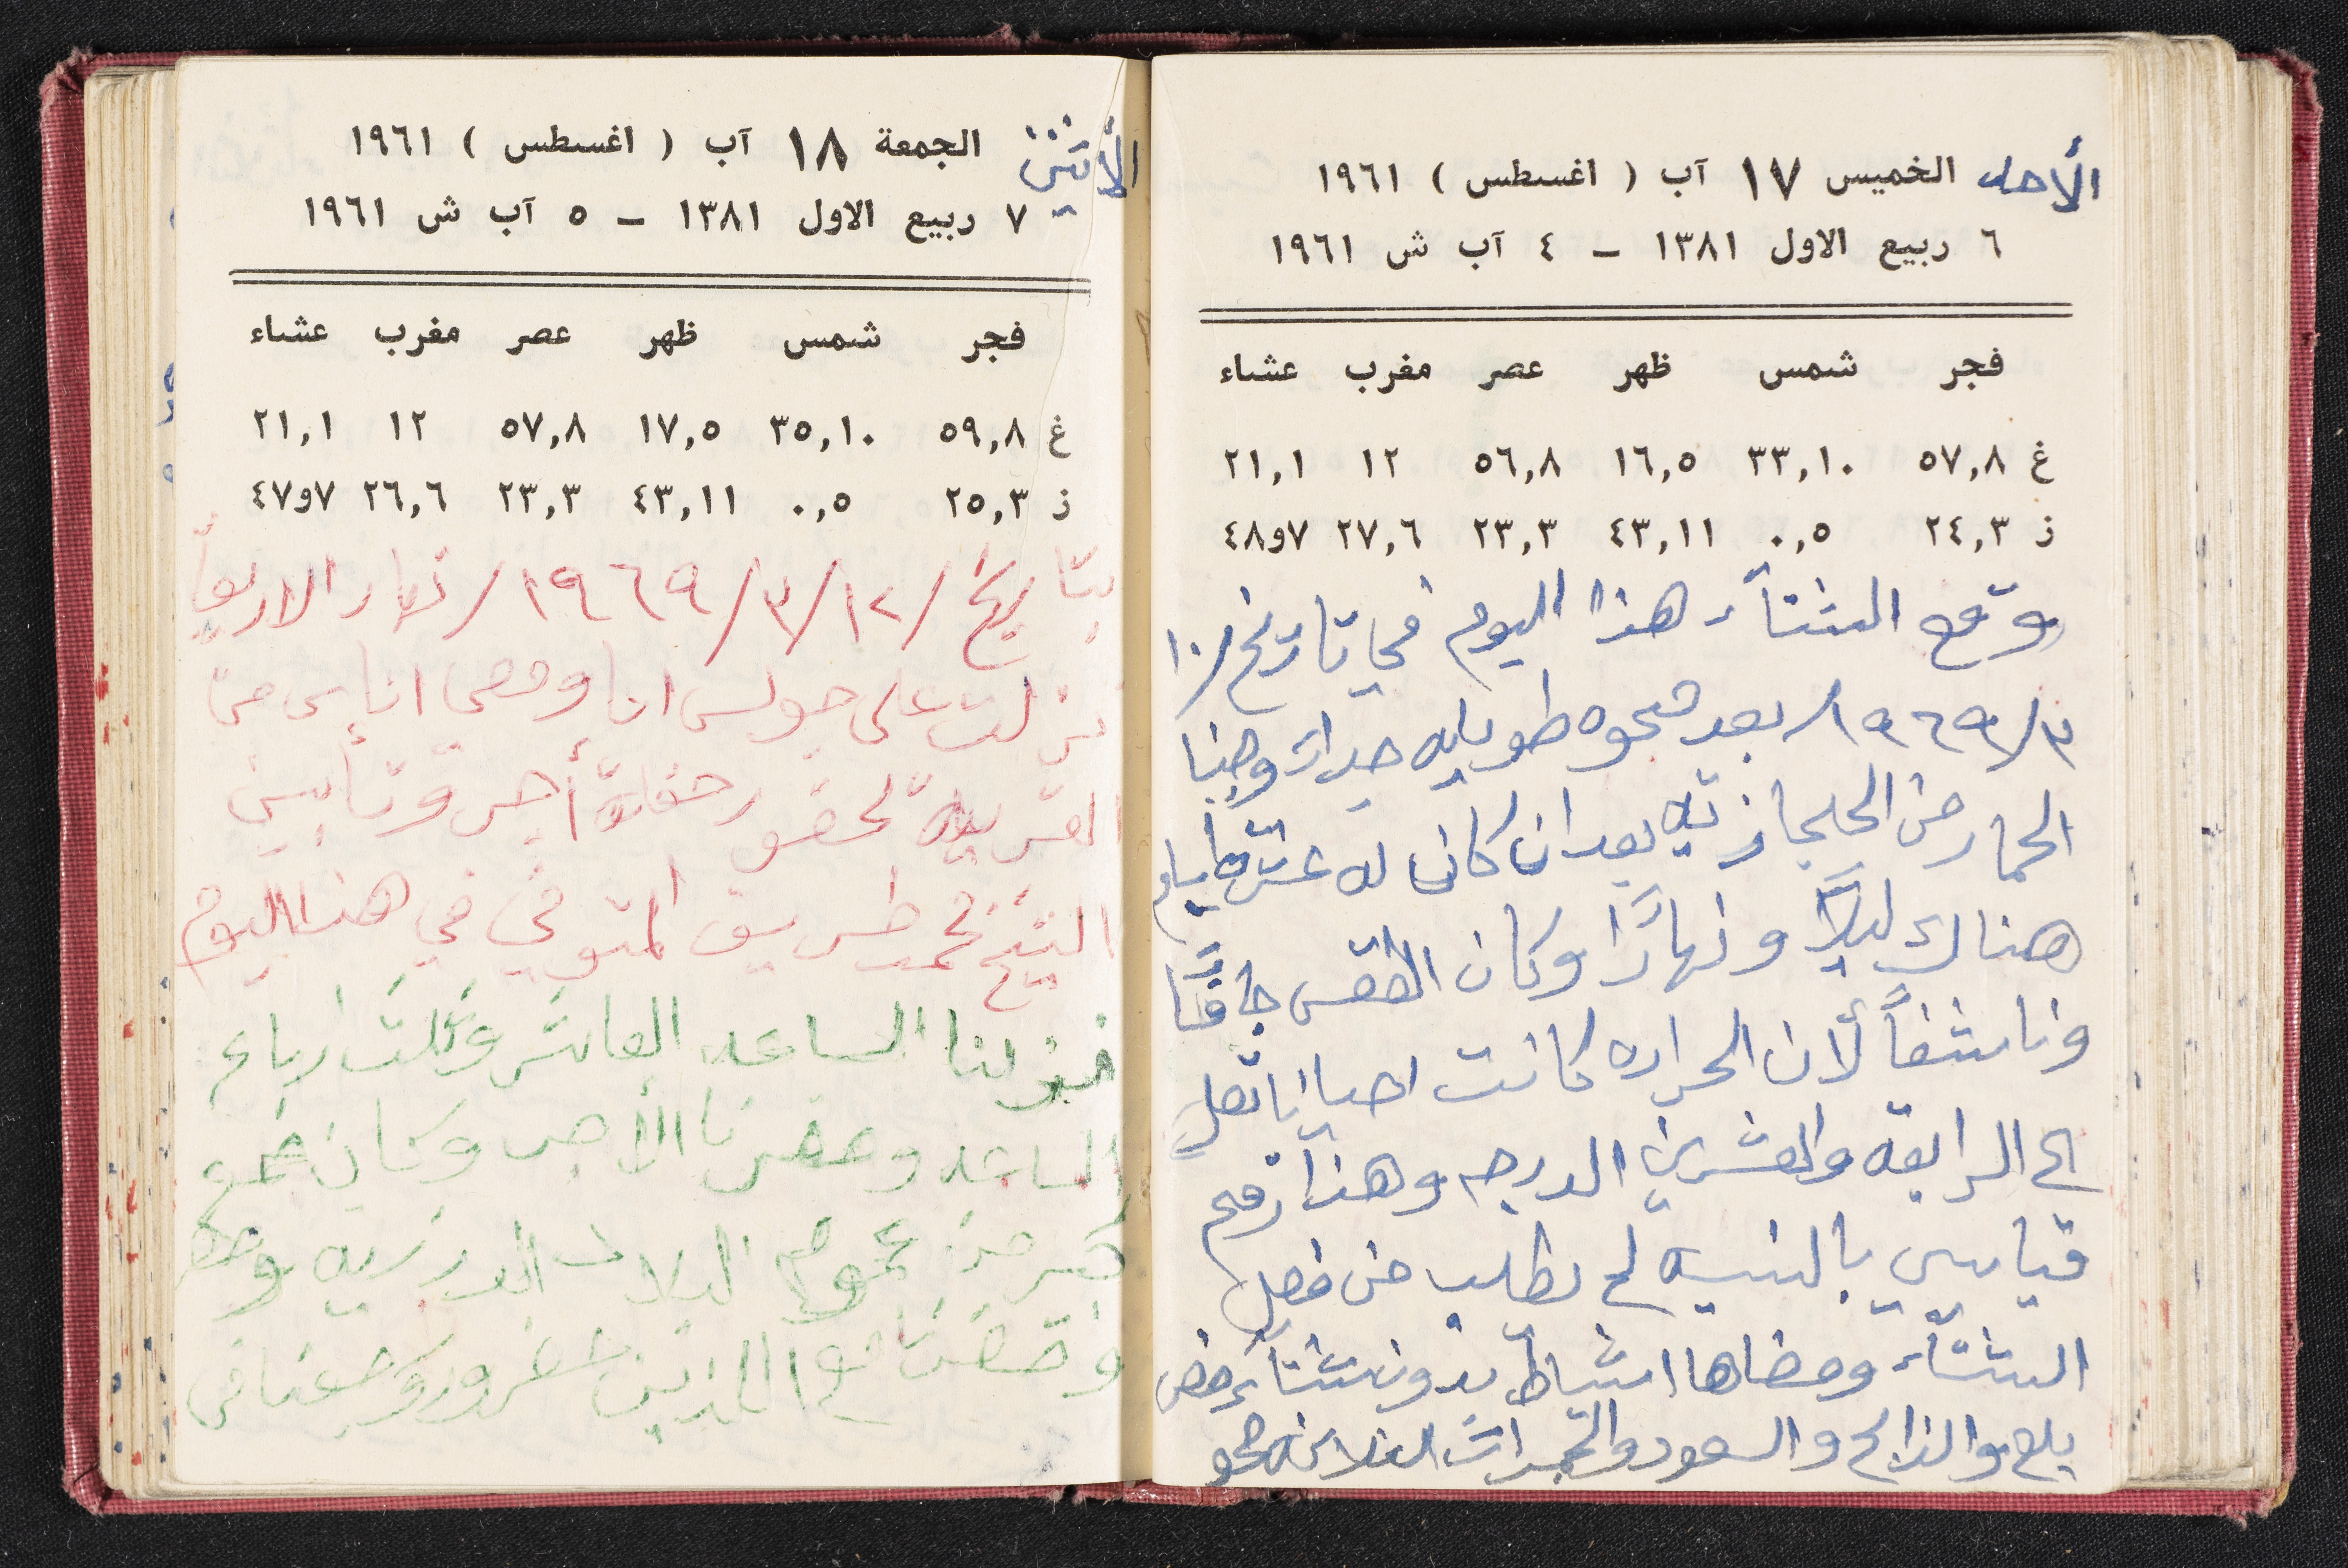 الأحد الخميس ١٧ آب ( اغسطس ) ١٩٦١
٦ ربيع الاول ١٣٨١ – ٤ آب ش ١٩٦١
فجر شمس ظهر عصر مغرب عشاء
غ ٥٧,٨ ٣٣,١٠ ١٦,٥ ٥٦,٨ ١٢ ٢١,١
ز ٢٤,٣ ٠,٥ ٤٣,١١ ٢٣,٣ ٢٧,٦ ٧و٤٨
وقع الشتآء هذا اليوم في تاريخ /١٠
٣/١٩٦٩/ بعد صحوه طويله جداً وجبنا
الحمار من بعد ان كان له عشرة ايام
هناك ليلاً ونهارًا وكان الطقس جافًا
وناشفاً لأن الحراره كانت احيانا تصل
الى الرابعه والعشرين الدرجه وهذا رقم
قياسي بالنسبه لم يطلب من فصل
الشتآء ومضاها اشباط بدون شتآء
بلع والذابح والسعود والجمرات الثلاثه صحو
الأثنين الجمعة ١٨ آب ( اغسطس ) ١٩٦١
٧ ربيع الاول ١٣٨١ – ٥ آب ش ١٩٦١
فجر شمس ظهر عصر مغرب عشاء
غ ٥٩,٨ ٣٥,١٠ ١٧,٥ ٥٧,٨ ١٢ ٢١,١
ز ٢٥,٣ ٠,٥ ٤٣,١١ ٢٣,٣ ٢٦,٦ ٧و٤٧
بتاريخ /١٢/٣/١٩٦٩/ نهار الاربعا
نزلت على جولس انا ومعي اناس من
القريه لحضور حفلة أجر وتأبين
الشيخ محمد طريف المتوفي في هذا اليوم
فنزلنا الساعه العاشر وثلث ارباع
الساعه وحضرنا الأجر وكان جمع
كبير من عموم البلاد الدرزيه